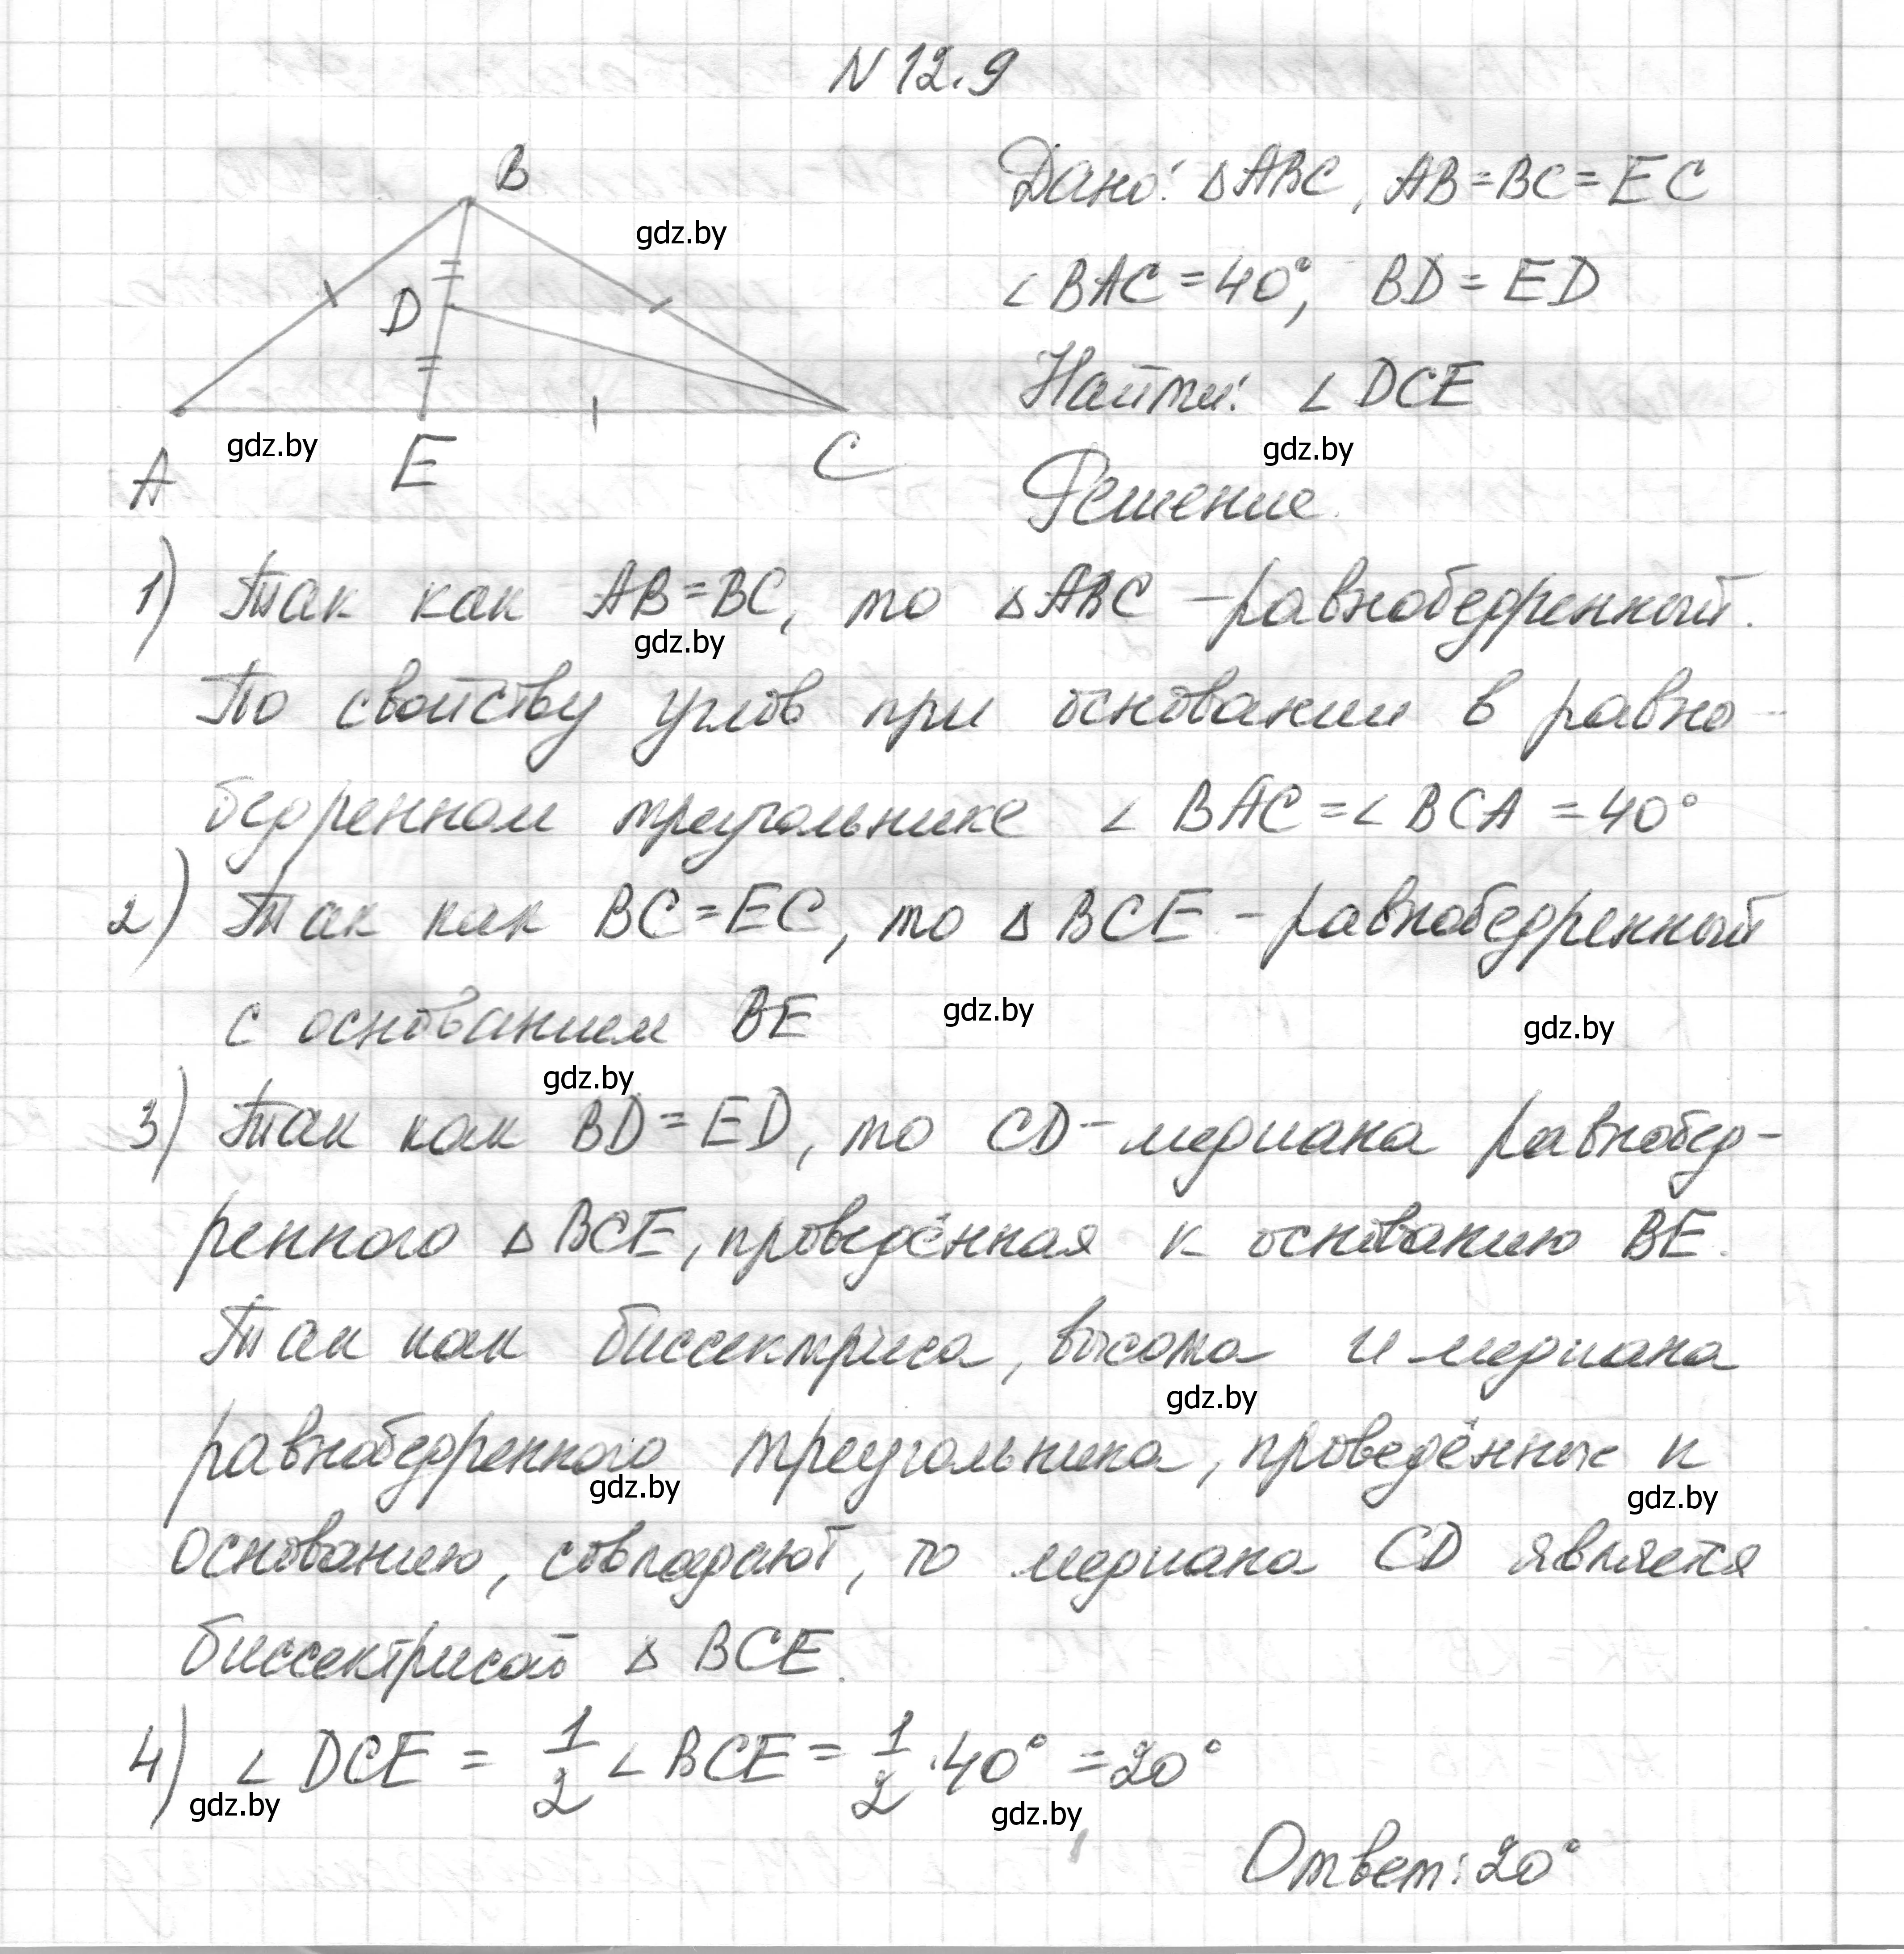 N 12.9
B
gdz.by
D
A
gdz.by
E
C
Дано: △ABC, AB=BC=EC
∠BAC=40°, BD=ED
Найти: ∠DCE
gdz.by
Решение.
1) Так как AB=BC, то △ABC -равнобедренный.
gdz.by
По свойству углов при основании в равно-
бедренном треугольнике ∠BAC=∠BCA=40°
2) Так как BC=EC, то △BCE -равнобедренный
с основанием BE
gdz.by
gdz.by
gdz.by
3) Так как BD=ED, то CD-медиана равнобед-
ренного △BCE, проведённая к основанию BE.
Так как биссектриса, высота и медиана
gdz.by
равнобедренного треугольника, проведённые к
gdz.by
gdz.by
основанию, совпадают, то медиана CD является
биссектрисой △BCE.
4) ∠DCE = 1/2 ∠BCE = 1/2 ·40° =20°
gdz.by
gdz.by
Ответ: 20°